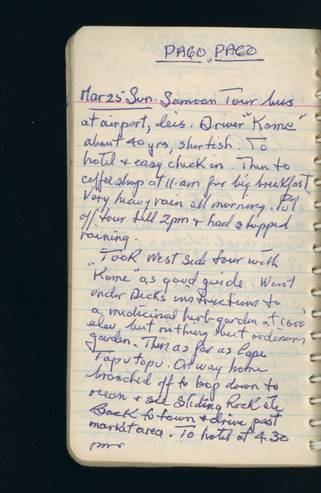 PAGO PAGO
Mar 25 Sun. Samoan Tour bus
at airport, leis. Driver "Kome"
about 40 yrs, shortish. To
hotel & easy check in. Then to
coffee shop at 11 am for big breakfast
Very heavy rain all morning. Put
off tour till 2pm & had stopped
raining.
Took West side tour with
"Kome" as good guide. Went
under Dicks instructions to
a medicinal herb garden at 1600'
elev but nothing but ordinary
garden. Then as far as Cape
Taputapu. On way home
branched off to loop down to
ocean & see Sliding Rock etc
Back to town & drive past
market area. To hotel at 4.30
pm